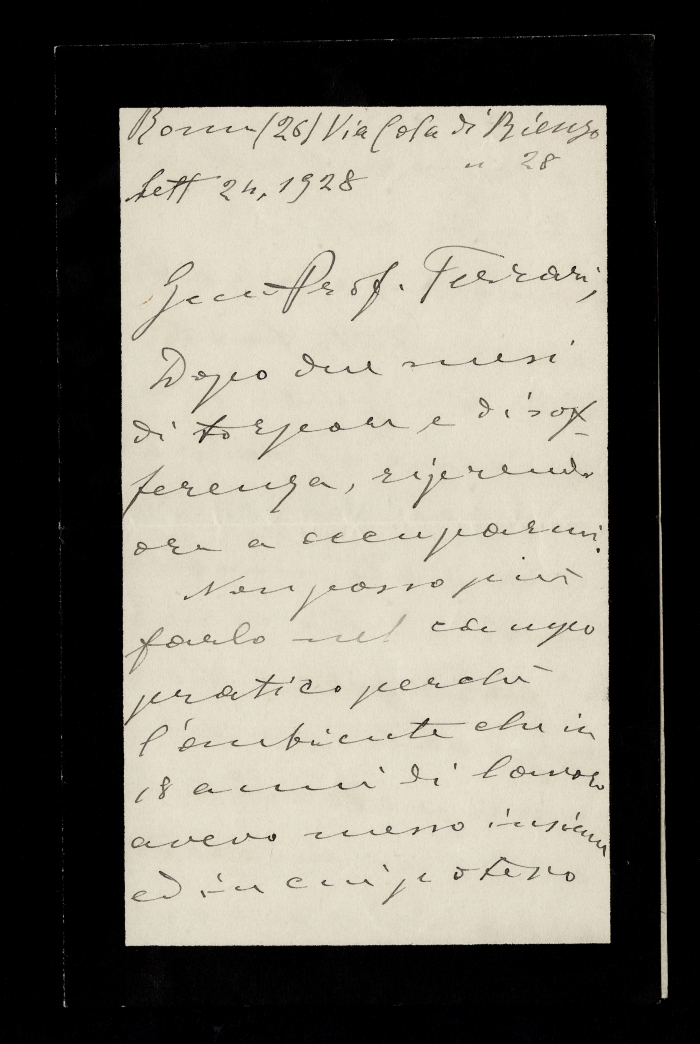 Roma (26) Via Cola di Rienzo
n 28
Sett 24, 1928
Prof. Ferrari,
Dopo due mesi
di torpore e di sof-
ferenza, riprendo
ora a occuparmi.
Non posso più
farlo nel campo
pratico perchè
l'ambiente che in
18 anni di lavoro
avevo messo insieme
ed in cui potevo